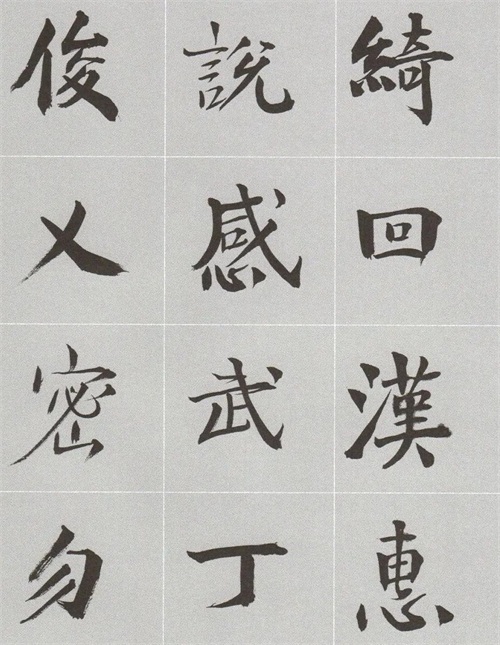 綺回漢惠
說感武丁
俊乂密勿